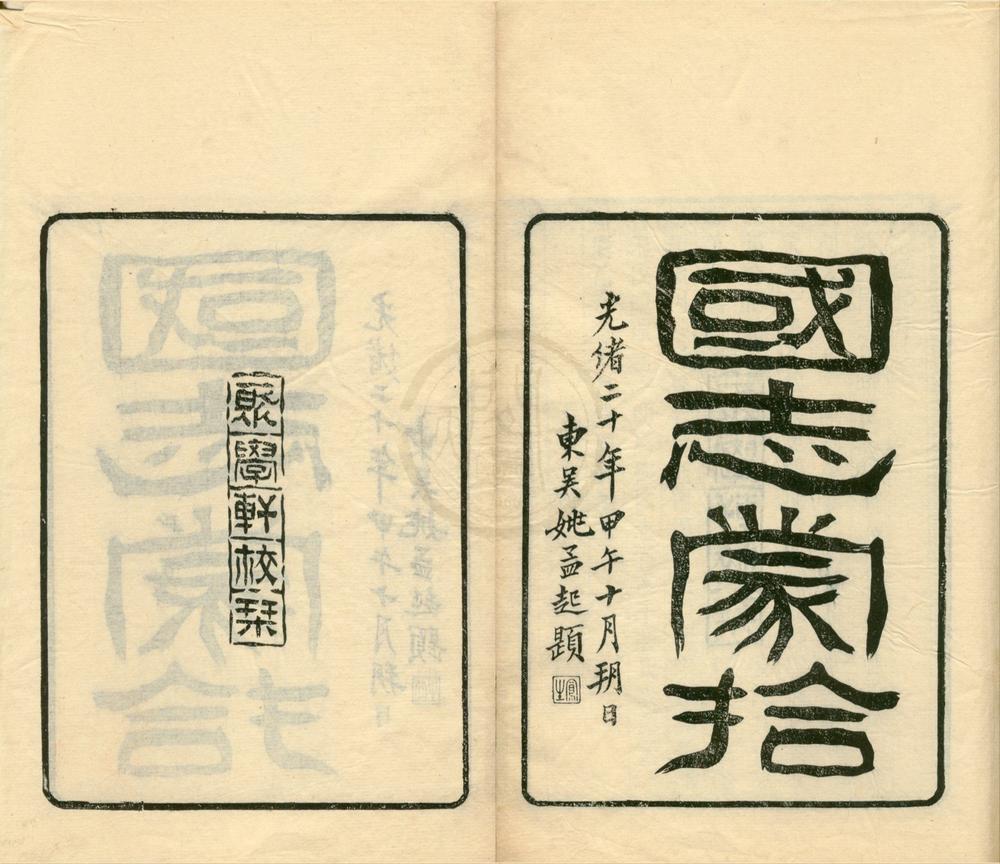 國志蒙拾
光緒二十年甲午十月朔日
東吴姚孟起題
聚學軒校栞